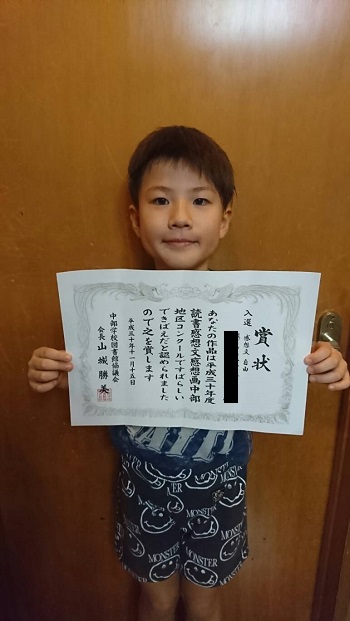 賞状
入選 感想文 自由
あなたの作品は平成三十年度
読書感想文感想画中部
地区コンクールですばらしい
できばえだと認められました
ので之を賞します
平成三十年十一月十五日
中部学校図書館協議会
会長 山城勝美
MONSTER
MONSTER
MONSTER
MONSTER